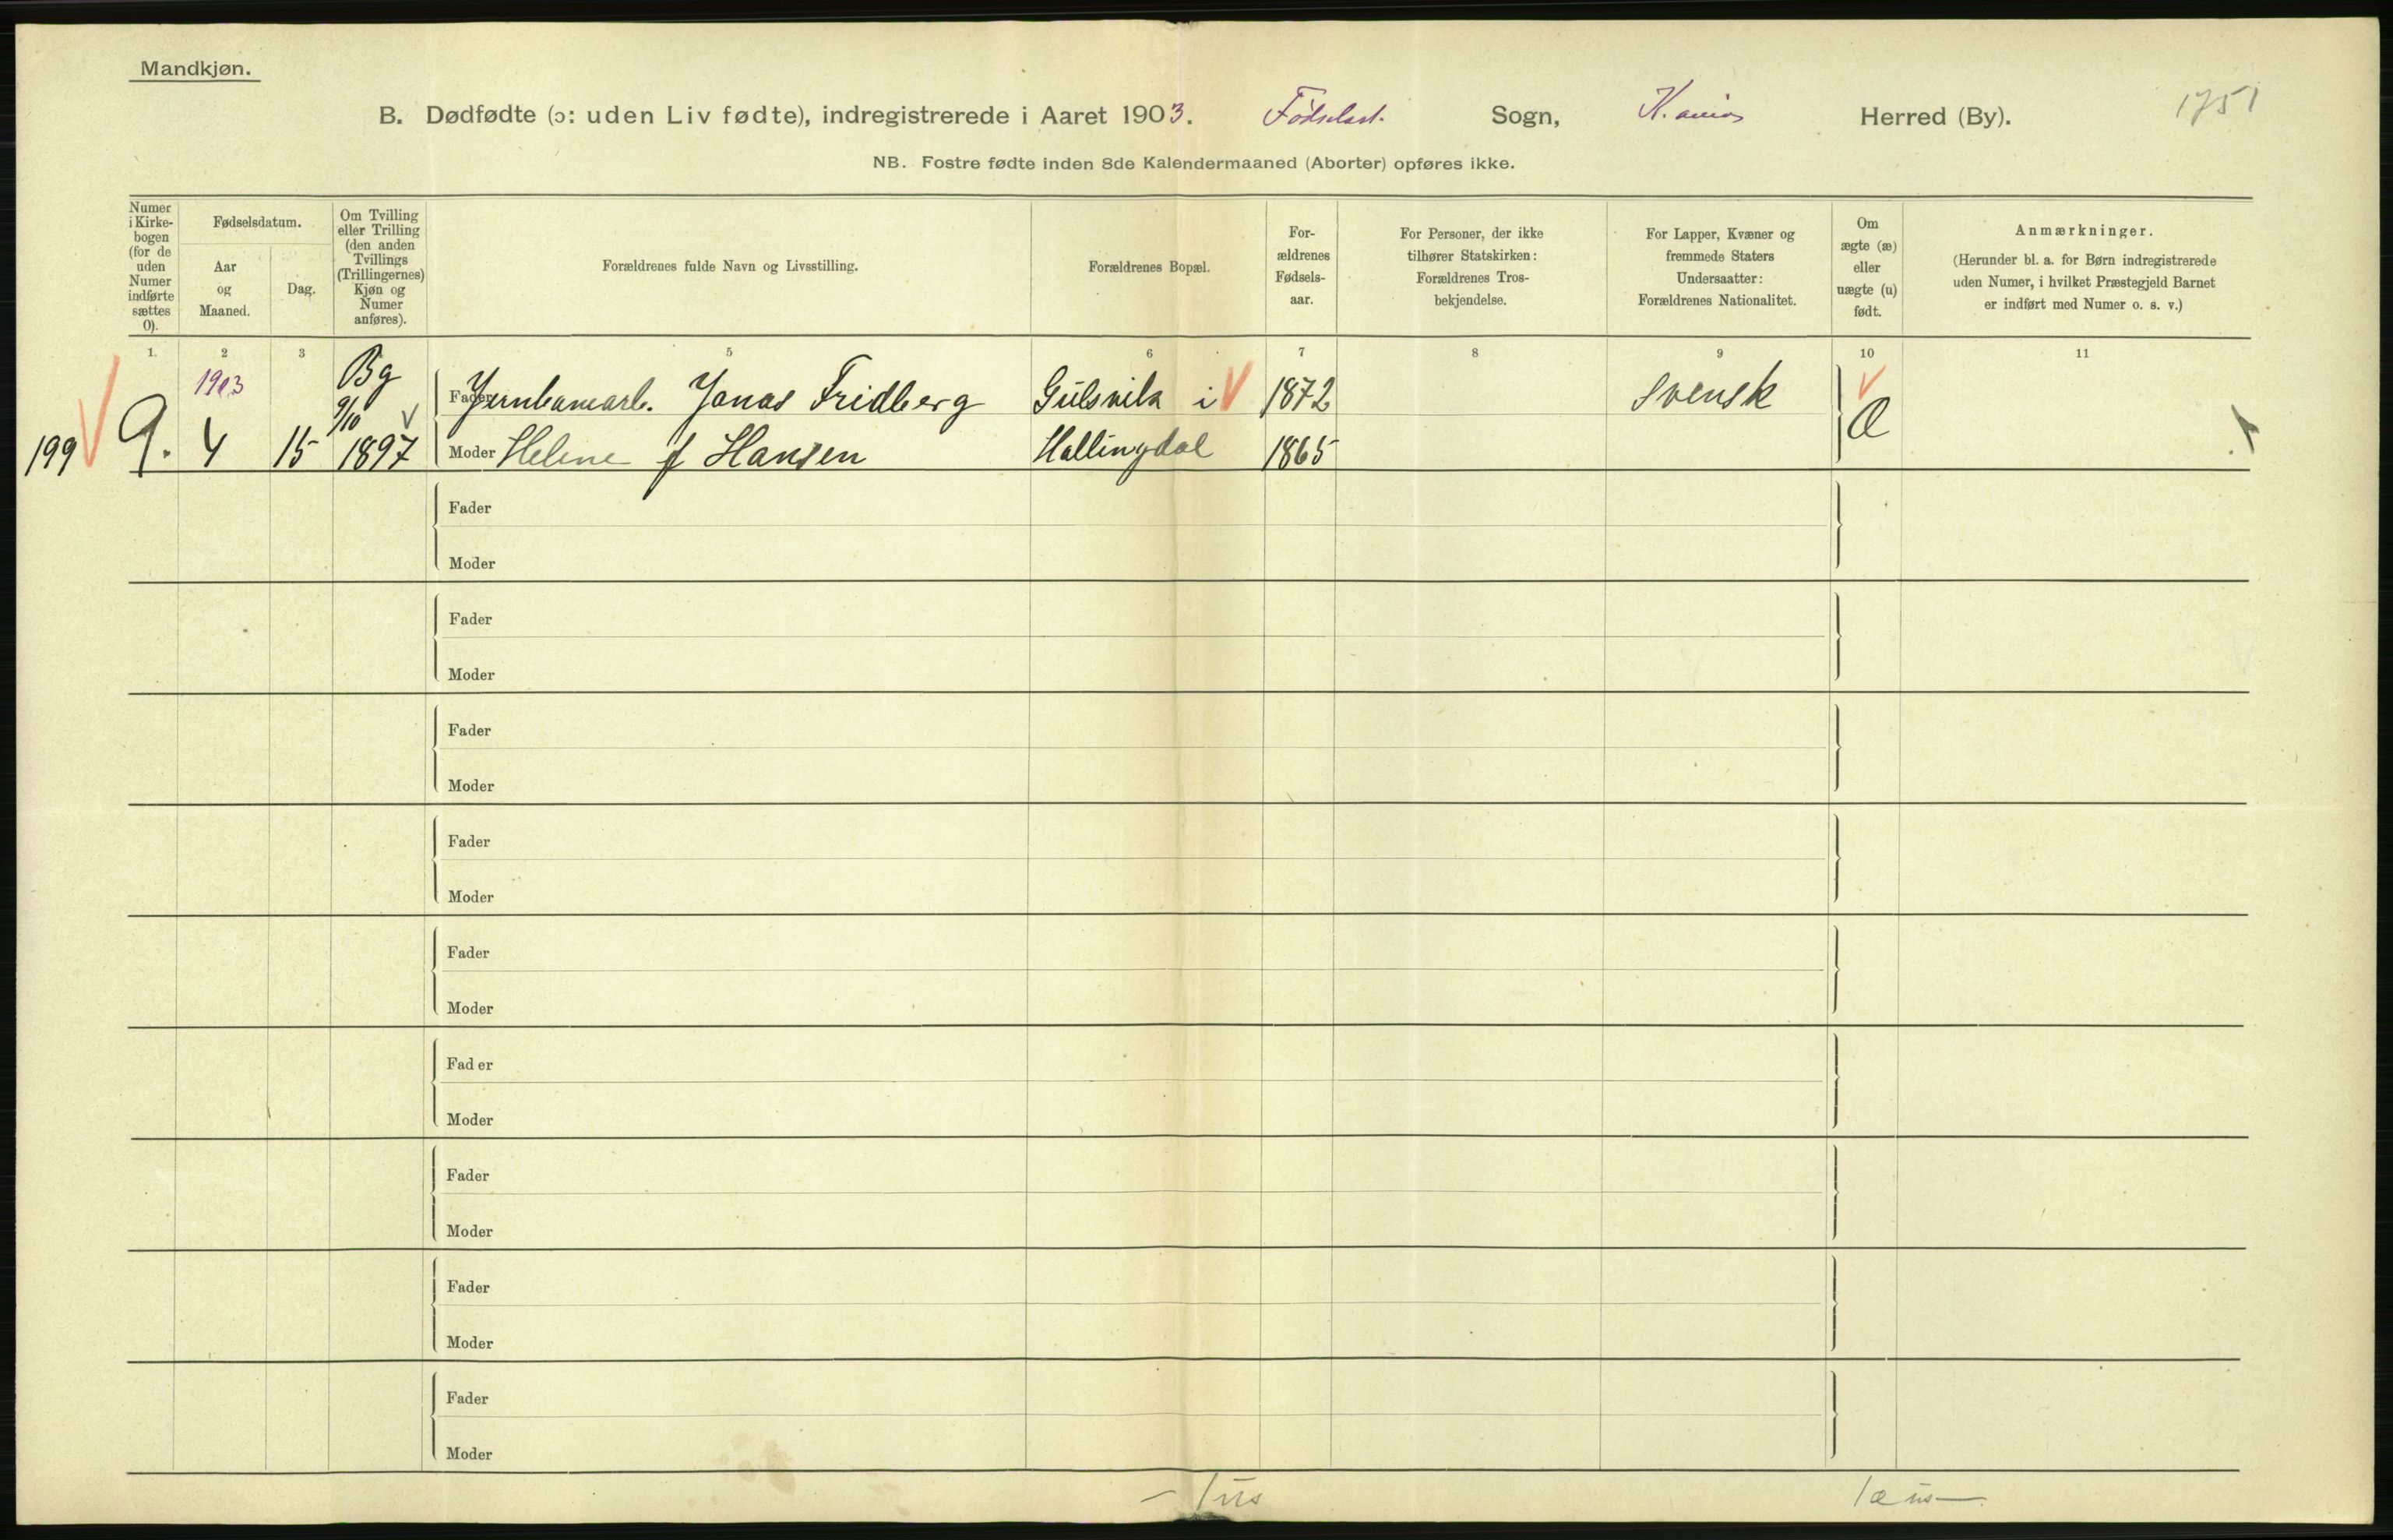 Mandkjøn.
B. Dødfødte (ɔ: uden Liv fødte), indregistrerede i Aaret 1903. Fødselsst. Sogn, Herred (By). 1751
NB. Fostre fødte inden 8de Kalendermaaned (Aborter) opføres ikke.
Numer
i Kirke-
bogen
(for de
uden
Numer
indførte
sættes
0).
Fødselsdatum.
Aar
og
Maaned.
Dag.
Om Tvilling
eller Trilling
(den anden
Tvillings
(Trillingernes)
Kjøn og
Numer
anføres).
Forældrenes fulde Navn og Livsstilling.
Forældrenes Bopæl.
For-
ældrenes
Fødsels-
aar.
For Personer, der ikke
tilhører Statskirken:
Forældrenes Tros-
bekjendelse.
For Lapper, Kvæner og
fremmede Staters
Undersaatter:
Forældrenes Nationalitet.
Om
ægte (æ)
eller
uægte (u)
født.
Anmærkninger.
(Herunder bl. a. for Børn indregistrerede
uden Numer, i hvilket Præstegjeld Barnet
er indført med Numer o. s. v.)
1. 2 3 5 6 7 8 9 10 11
1903 Bg
9/10 Fader Jernbanearb. Jonas Fridberg Gulsvik i 1872 Svensk
199 9. 4 15 1897 Moder Helene f Hansen Hallingdal 1865 Æ
Fader
Moder
Fader
Moder
Fader
Moder
Fader
Moder
Fader
Moder
Fader
Moder
Fader
Moder
Fader
Moder
Fader
Moder